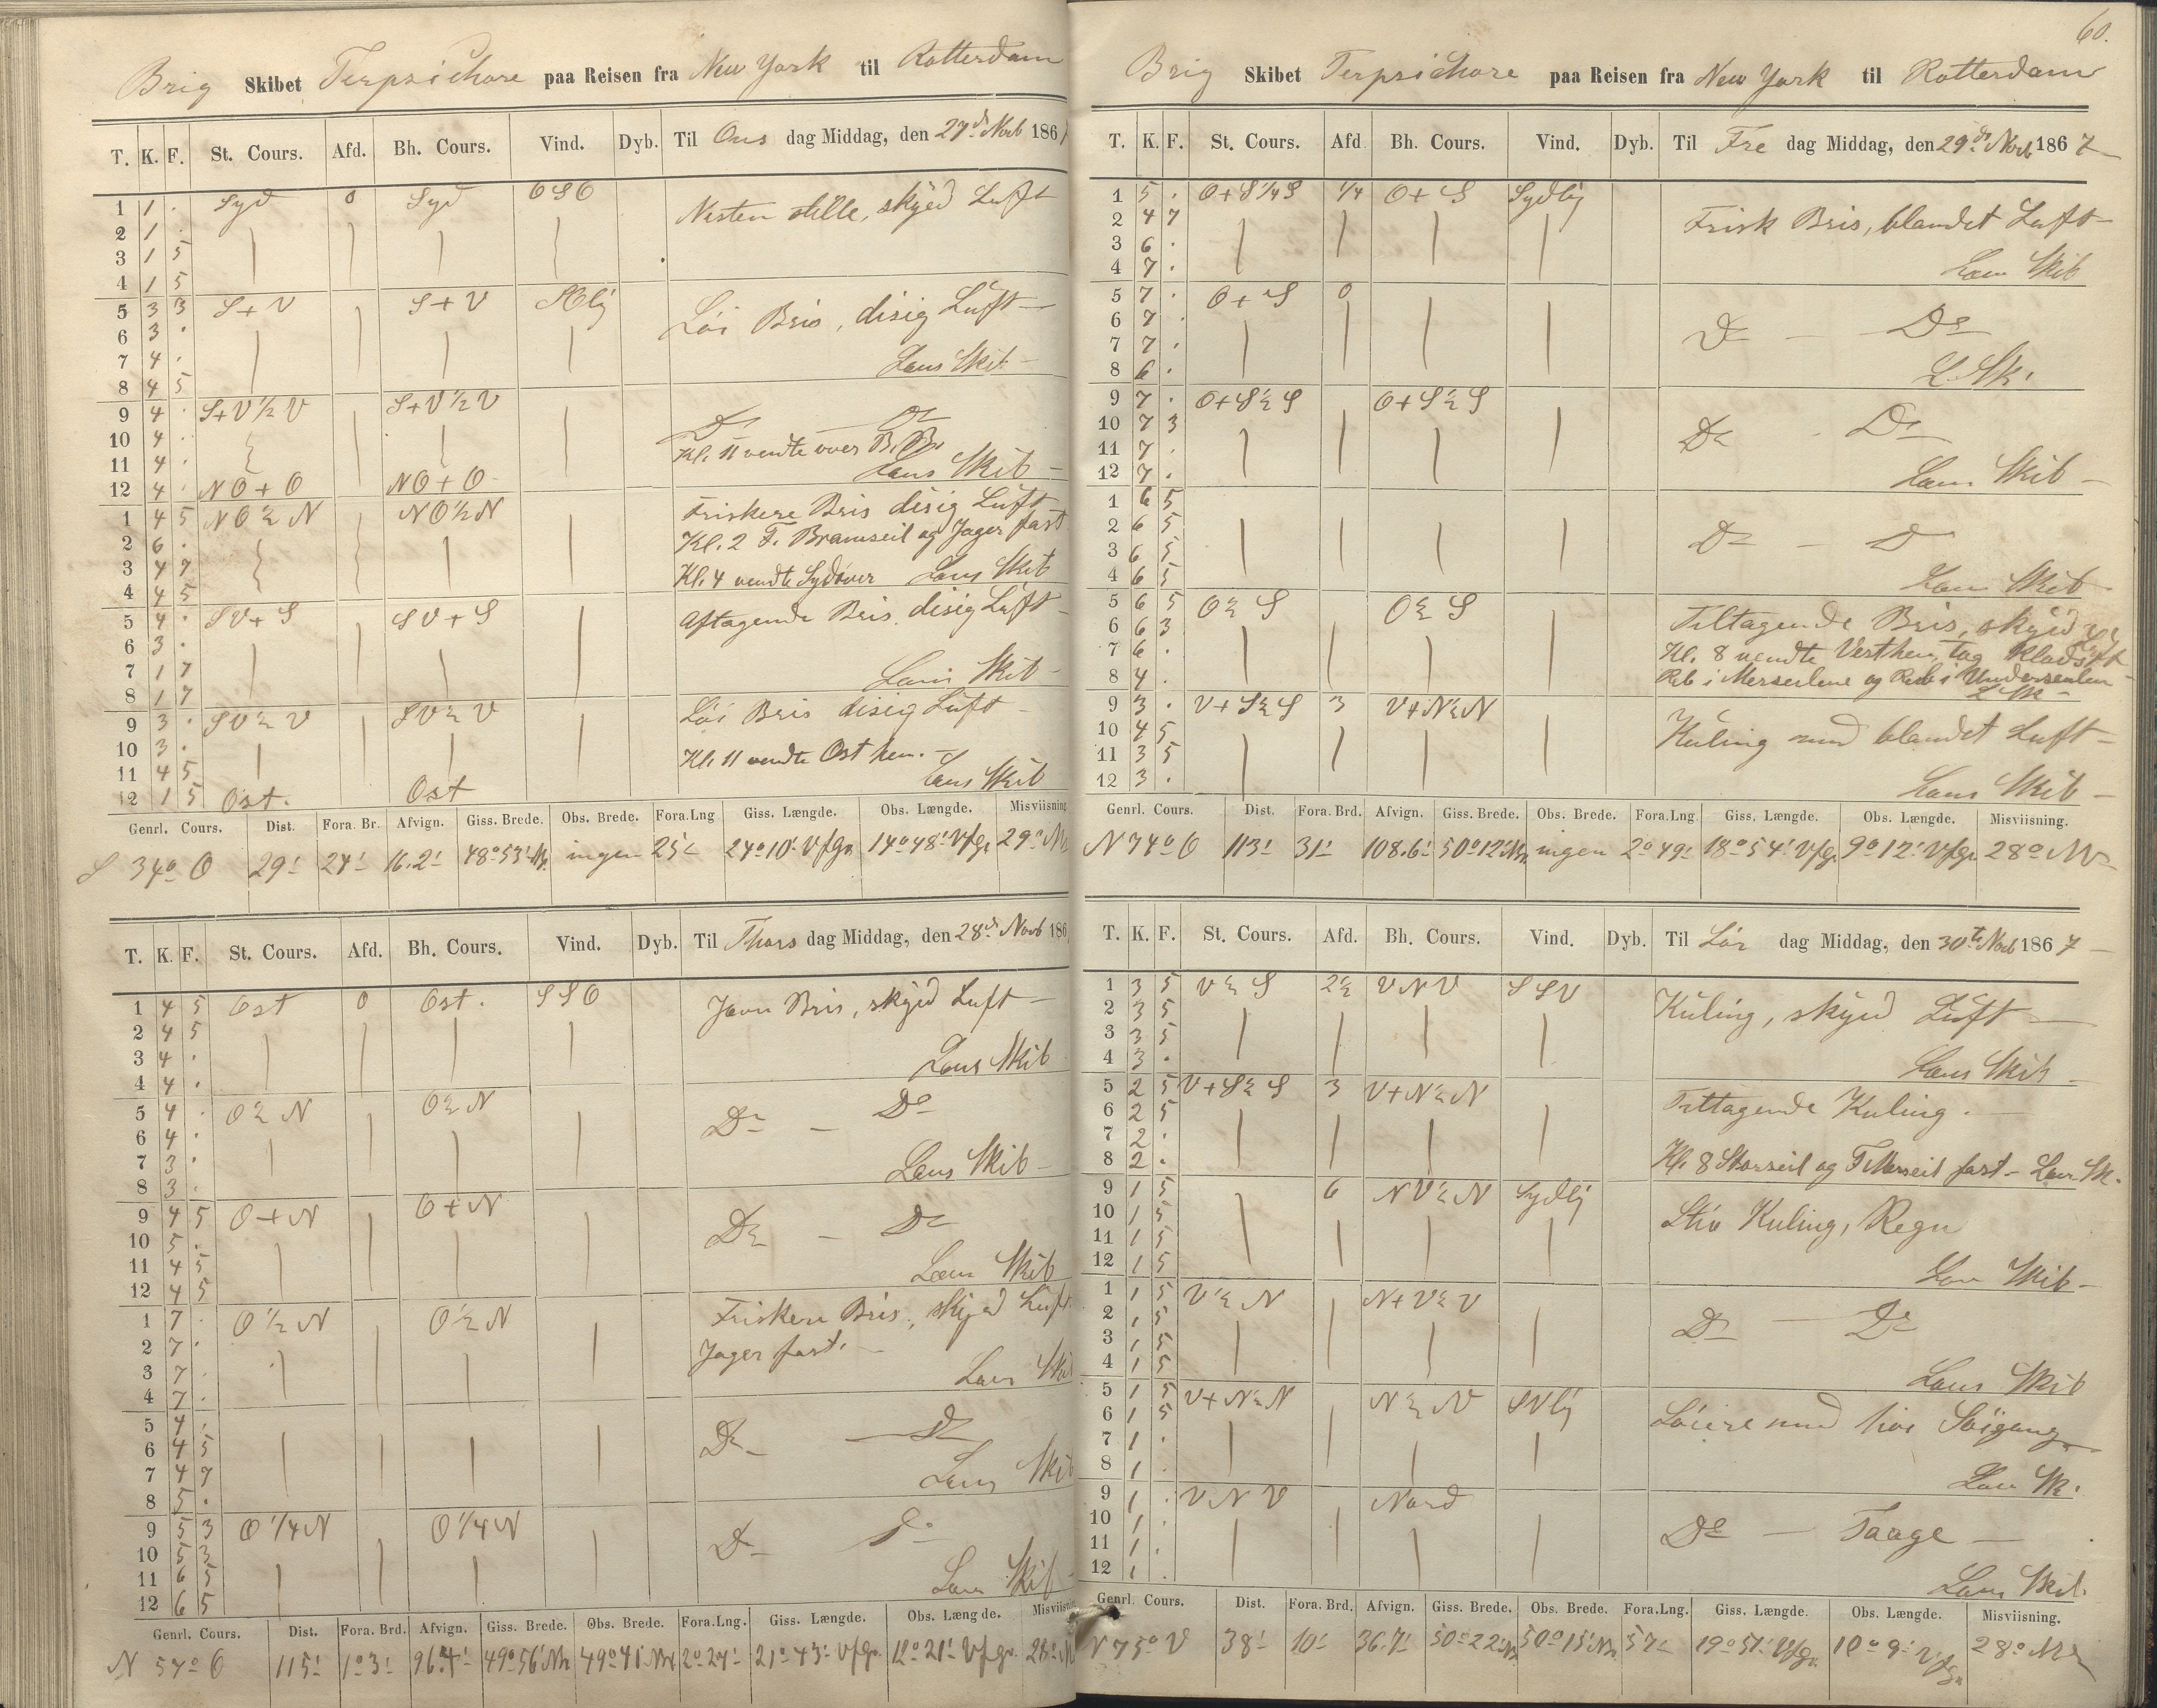 60.
Brig Skibet Terpsichore paa Reisen fra New York til Rotterdam
T. K. F. St. Cours. Afd. Bh. Cours. Vind. Dyb. Til Ons dag Middag, den 27de Novb 1867
1 1 . Syd 0 Syd OSO Næsten stille, skyed Luft
2 1 .
3 1 5
4 1 5
5 3 3 S+V S+V SOlig Löi Bris, disig Luft
6 3 .
7 4 . Læns Skib
8 4 5
9 4 . S+V½V S+V½V Do Do
10 4 . Kl. 11 vendte over B.B.
11 4 . Læns Skib
12 4 . NO+O NO+O
1 4 5 NO½N NO½N Friskere Bris disig Luft
2 6 . Kl. 2 F. Bramseil og Jager fast
3 4 7 Kl. 4 vendte Sydover Læns Skib
4 4 5
5 4 . SV+S SV+S Aftagende Bris, disig Luft
6 3 .
7 1 7 Læns Skib
8 1 7
9 3 . SV½V SV½V Löi Bris disig Luft
10 3 . Kl. 11 vendte Ost hen.
11 4 5 Læns Skib
12 1 5 Ost. Ost
Genrl. Cours. Dist. Fora. Br. Afvign. Giss. Brede. Obs. Brede. Fora.Lng Giss. Længde. Obs. Længde. Misviisning
S 34° O 29' 24' 16.2' 48°53' Nr. ingen 25' 24°10' Vfgr. 14°48' Vfgr 29° Nv
T. K. F. St. Cours. Afd. Bh. Cours. Vind. Dyb. Til Thors dag Middag, den 28de Novb 186
1 4 5 Ost 0 Ost. SSO Jævn Bris, skyed Luft
2 4 5
3 4 . Læns Skib
4 4 .
5 4 . O½N O½N Do Do
6 4 .
7 3 . Læns Skib
8 3 .
9 4 5 O+N O+N Do Do
10 5 .
11 4 5 Læns Skib
12 4 5
1 7 . O½N O½N Friskere Bris, skyed Luft
2 7 . Jager fast.
3 7 . Læns Skib
4 7 .
5 4 . Do Do
6 4 5
7 4 7 Læns Skib
8 5 .
9 5 3 O¼N O¼N Do Do
10 5 3
11 6 5 Læns Skib
12 6 5
Genrl. Cours. Dist. Fora. Brd. Afvign. Giss. Brede. Obs. Brede. Fora.Lng. Giss. Længde. Obs. Længde. Misviisning
N 57° O 115' 1°3' 96.4' 49°56' Nr 49°41' Nr 2°27' 21°43' Vfgr. 12°21' Vfgr. 28°
Brig Skibet Terpsichore paa Reisen fra New York til Rotterdam
T. K. F. St. Cours. Afd Bh. Cours. Vind. Dyb. Til Fre dag Middag, den 29de Novb 1867
1 5 . O+S¼S ¼ O+S Sydlig Frisk Bris, blandet Luft
2 4 7
3 6 . Læns Skib
4 7 .
5 7 . O+S 0 Do Do
6 7 .
7 7 .
8 6 . L. Sk.
9 7 . O+S½S O+S½S Do Do
10 7 3
11 7 .
12 7 . Læns Skib
1 6 5
2 6 5 Do D
3 6 5
4 6 5 Læns Skib
5 6 5 O½S O½S Tiltagende Bris, skyed Luft
6 6 3 Kl. 8 vendte Vesthen, tog Klods
7 6 . Reb i Merseilene og Reb i Underseilen
8 4 . L Sk
9 3 . V+S½S 3 V+N½N Kuling med blandet Luft
10 4 5
11 3 5
12 3 . Læns Skib
Genrl. Cours. Dist. Fora. Brd. Afvign. Giss. Brede. Obs. Brede. Fora.Lng. Giss. Længde. Obs. Længde. Misviisning.
N 74° O 113' 31' 108.6' 50°12' Nr. ingen 2°49' 18°54' Vfgr. 9°12' Vfgr. 28° Nv
T. K. F. St. Cours. Afd. Bh. Cours. Vind. Dyb. Til Lör dag Middag, den 30te Novb 1867
1 3 5 V½S 2½ VNV SSV Kuling, skyed Luft
2 3 5
3 3 5
4 3 . Læns Skib
5 2 5 V+S½S 3 V+N½N Tiltagende Kuling.
6 2 5
7 2 .
8 2 . Kl. 8 Storseil og F Merseil fast Læns Sk.
9 1 5 6 NV½N Sydlig Stiv Kuling, Regn
10 1 5
11 1 5
12 1 5 Læns Skib
1 1 5 V½N N+V½V Do Do
2 1 5
3 1 5
4 1 5 Læns Skib
5 1 5 V+N½N N½V SVlig Löiere med höi Söigang
6 1 5
7 1 .
8 1 . Læns Sk.
9 1 . VNV Nord Do Taage
10 1 .
11 1 .
12 1 . Læns Skib.
Genrl. Cours. Dist. Fora. Brd. Afvign. Giss. Brede. Obs. Brede. Fora.Lng. Giss. Længde. Obs. Længde. Misviisning.
N 75° V 38' 10' 36.7' 50°22' Nr. 50°15' Nr. 57' 19°51' Vfgr. 10°9' Vfgr. 28° Nv